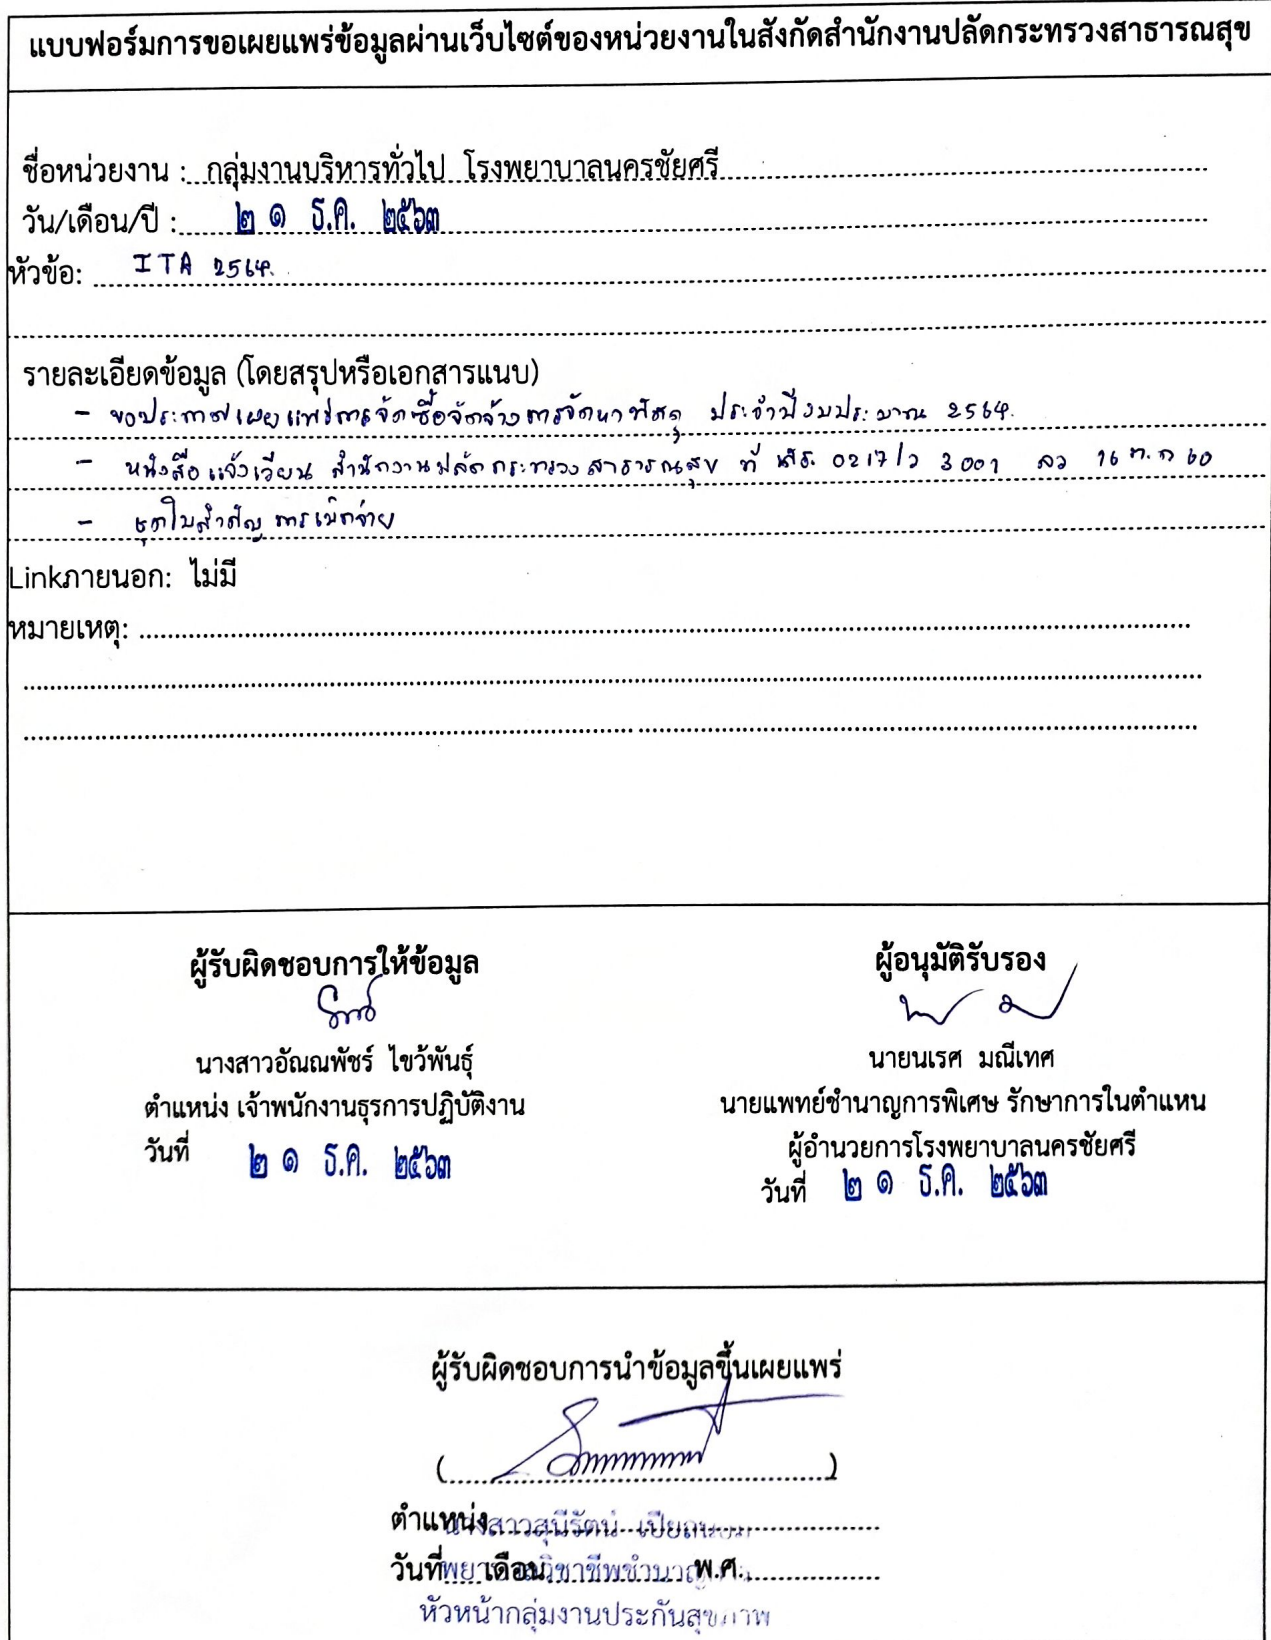 แบบฟอร์มการขอเผยแพร่ข้อมูลผ่านเว็บไซต์ของหน่วยงานในสังกัดสำนักงานปลัดกระทรวงสาธารณสุข
ชื่อหน่วยงาน : กลุ่มงานบริหารทั่วไป โรงพยาบาลนครชัยศรี
วัน/เดือน/ปี : ๒ ๑ ธ.ค. ๒๕๖๓
หัวข้อ: ITA 2564.
รายละเอียดข้อมูล (โดยสรุปหรือเอกสารแนบ)
- ขอประกาศเผยแพร่การจัดซื้อจัดจ้างการจัดหาพัสดุ ประจำปีงบประมาณ 2564.
- หนังสือแจ้งเวียน สำนักงานปลัดกระทรวงสาธารณสุข ที่ สธ. 0217/ว 3001 ลว 16 ต.ค 60
- ชุดใบสำคัญการเบิกจ่าย
Linkภายนอก: ไม่มี
หมายเหตุ:
ผู้รับผิดชอบการให้ข้อมูล
นางสาวอัณณพัชร์ ไขว้พันธุ์
ตำแหน่ง เจ้าพนักงานธุรการปฏิบัติงาน
วันที่ ๒ ๑ ธ.ค. ๒๕๖๓
ผู้อนุมัติรับรอง
นายนเรศ มณีเทศ
นายแพทย์ชำนาญการพิเศษ รักษาการในตำแหน
ผู้อำนวยการโรงพยาบาลนครชัยศรี
วันที่ ๒ ๑ ธ.ค. ๒๕๖๓
ผู้รับผิดชอบการนำข้อมูลขึ้นเผยแพร่
( )
ตำแหน่ง
นางสาวสุนีรัตน์
วันที่ เดือน พ.ศ.
พยาบาลวิชาชีพชำนาญการ
หัวหน้ากลุ่มงานประกันสุขภาพ